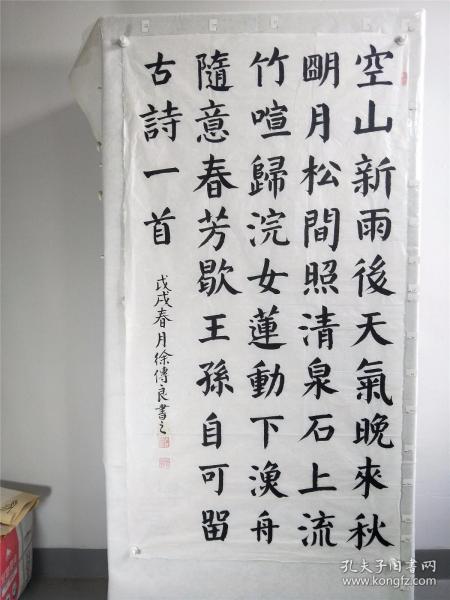 空山新雨後天氣晚來秋
朙月松間照清泉石上流
竹喧歸浣女蓮動下漁舟
隨意春芳歇王孫自可留
古詩一首
戊戌春月徐傳良書之
孔夫子旧书网
www.kongfz.com